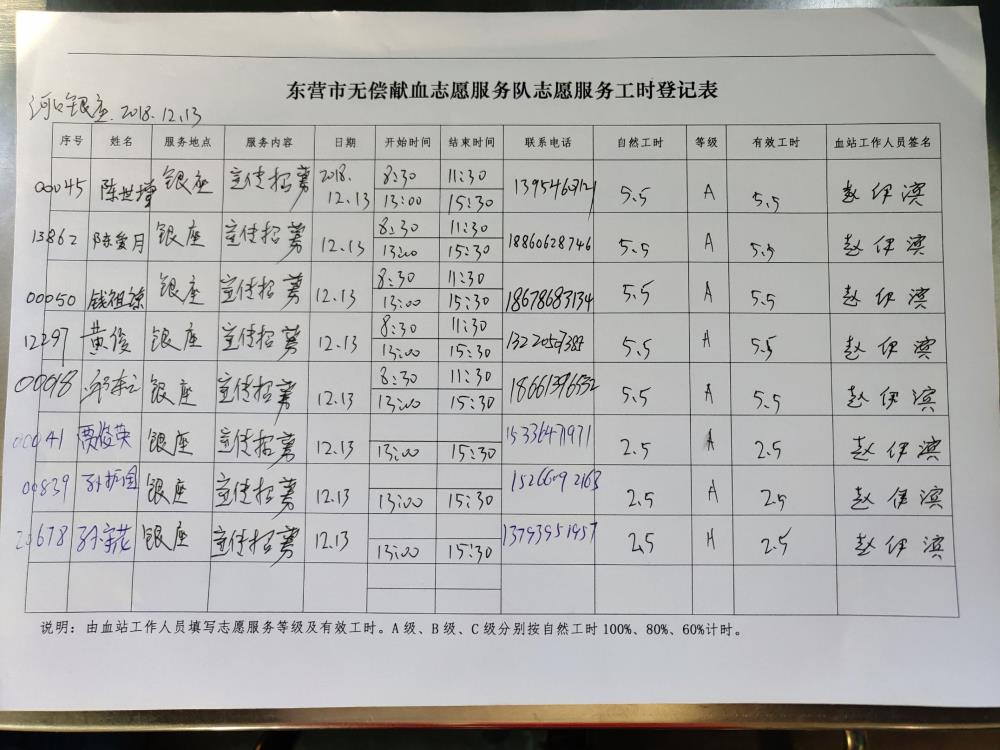 东营市无偿献血志愿服务队志愿服务工时登记表
河口银座.2018.12.13
序号 姓名 服务地点 服务内容 日期 开始时间 结束时间 联系电话 自然工时 等级 有效工时 血站工作人员签名
00045 陈世增 银座 宣传招募 2018.12.13 8:30 11:30 5.5 A 5.5 赵伊滨
13:00 15:30
13862 陈爱月 银座 宣传招募 12.13 8:30 11:30 18860628746 5.5 A 5.5 赵伊滨
13:00 15:30
00050 钱祖 银座 宣传招募 12.13 8:30 11:30 18678683134 5.5 A 5.5 赵伊滨
13:00 15:30
12297 黄俊 银座 宣传招募 12.13 8:30 11:30 5.5 A 5.5 赵伊滨
13:00 15:30
00098 银座 宣传招募 12.13 8:30 11:30 18661396532 5.5 A 5.5 赵伊滨
13:00 15:30
00041 贾俊英 银座 宣传招募 12.13 13:00 15:30 15336471971 2.5 A 2.5 赵伊滨
00839 孙护国 银座 宣传招募 12.13 13:00 15:30 15266092163 2.5 A 2.5 赵伊滨
678 孙宝花 银座 宣传招募 12.13 13:00 15:30 13793951957 2.5 A 2.5 赵伊滨
说明：由血站工作人员填写志愿服务等级及有效工时。A级、B级、C级分别按自然工时100%、80%、60%计时。